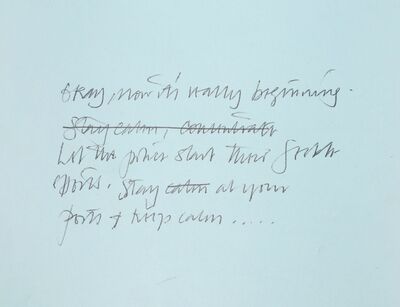 Okay, now it's really beginning.
Stay calm, concentrate
Let the points start their
efforts. Stay calm at your
posts & keep calm.....